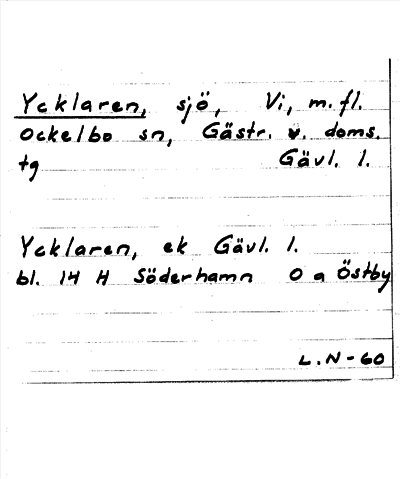 Ycklaren, sjö, Vi, m.fl.
Ockelbo sn, Gästr. v. doms.
tg Gävl. l.
Ycklaren, ek Gävl. l.
bl. 14 H Söderhamn O a Östby
L.N-60